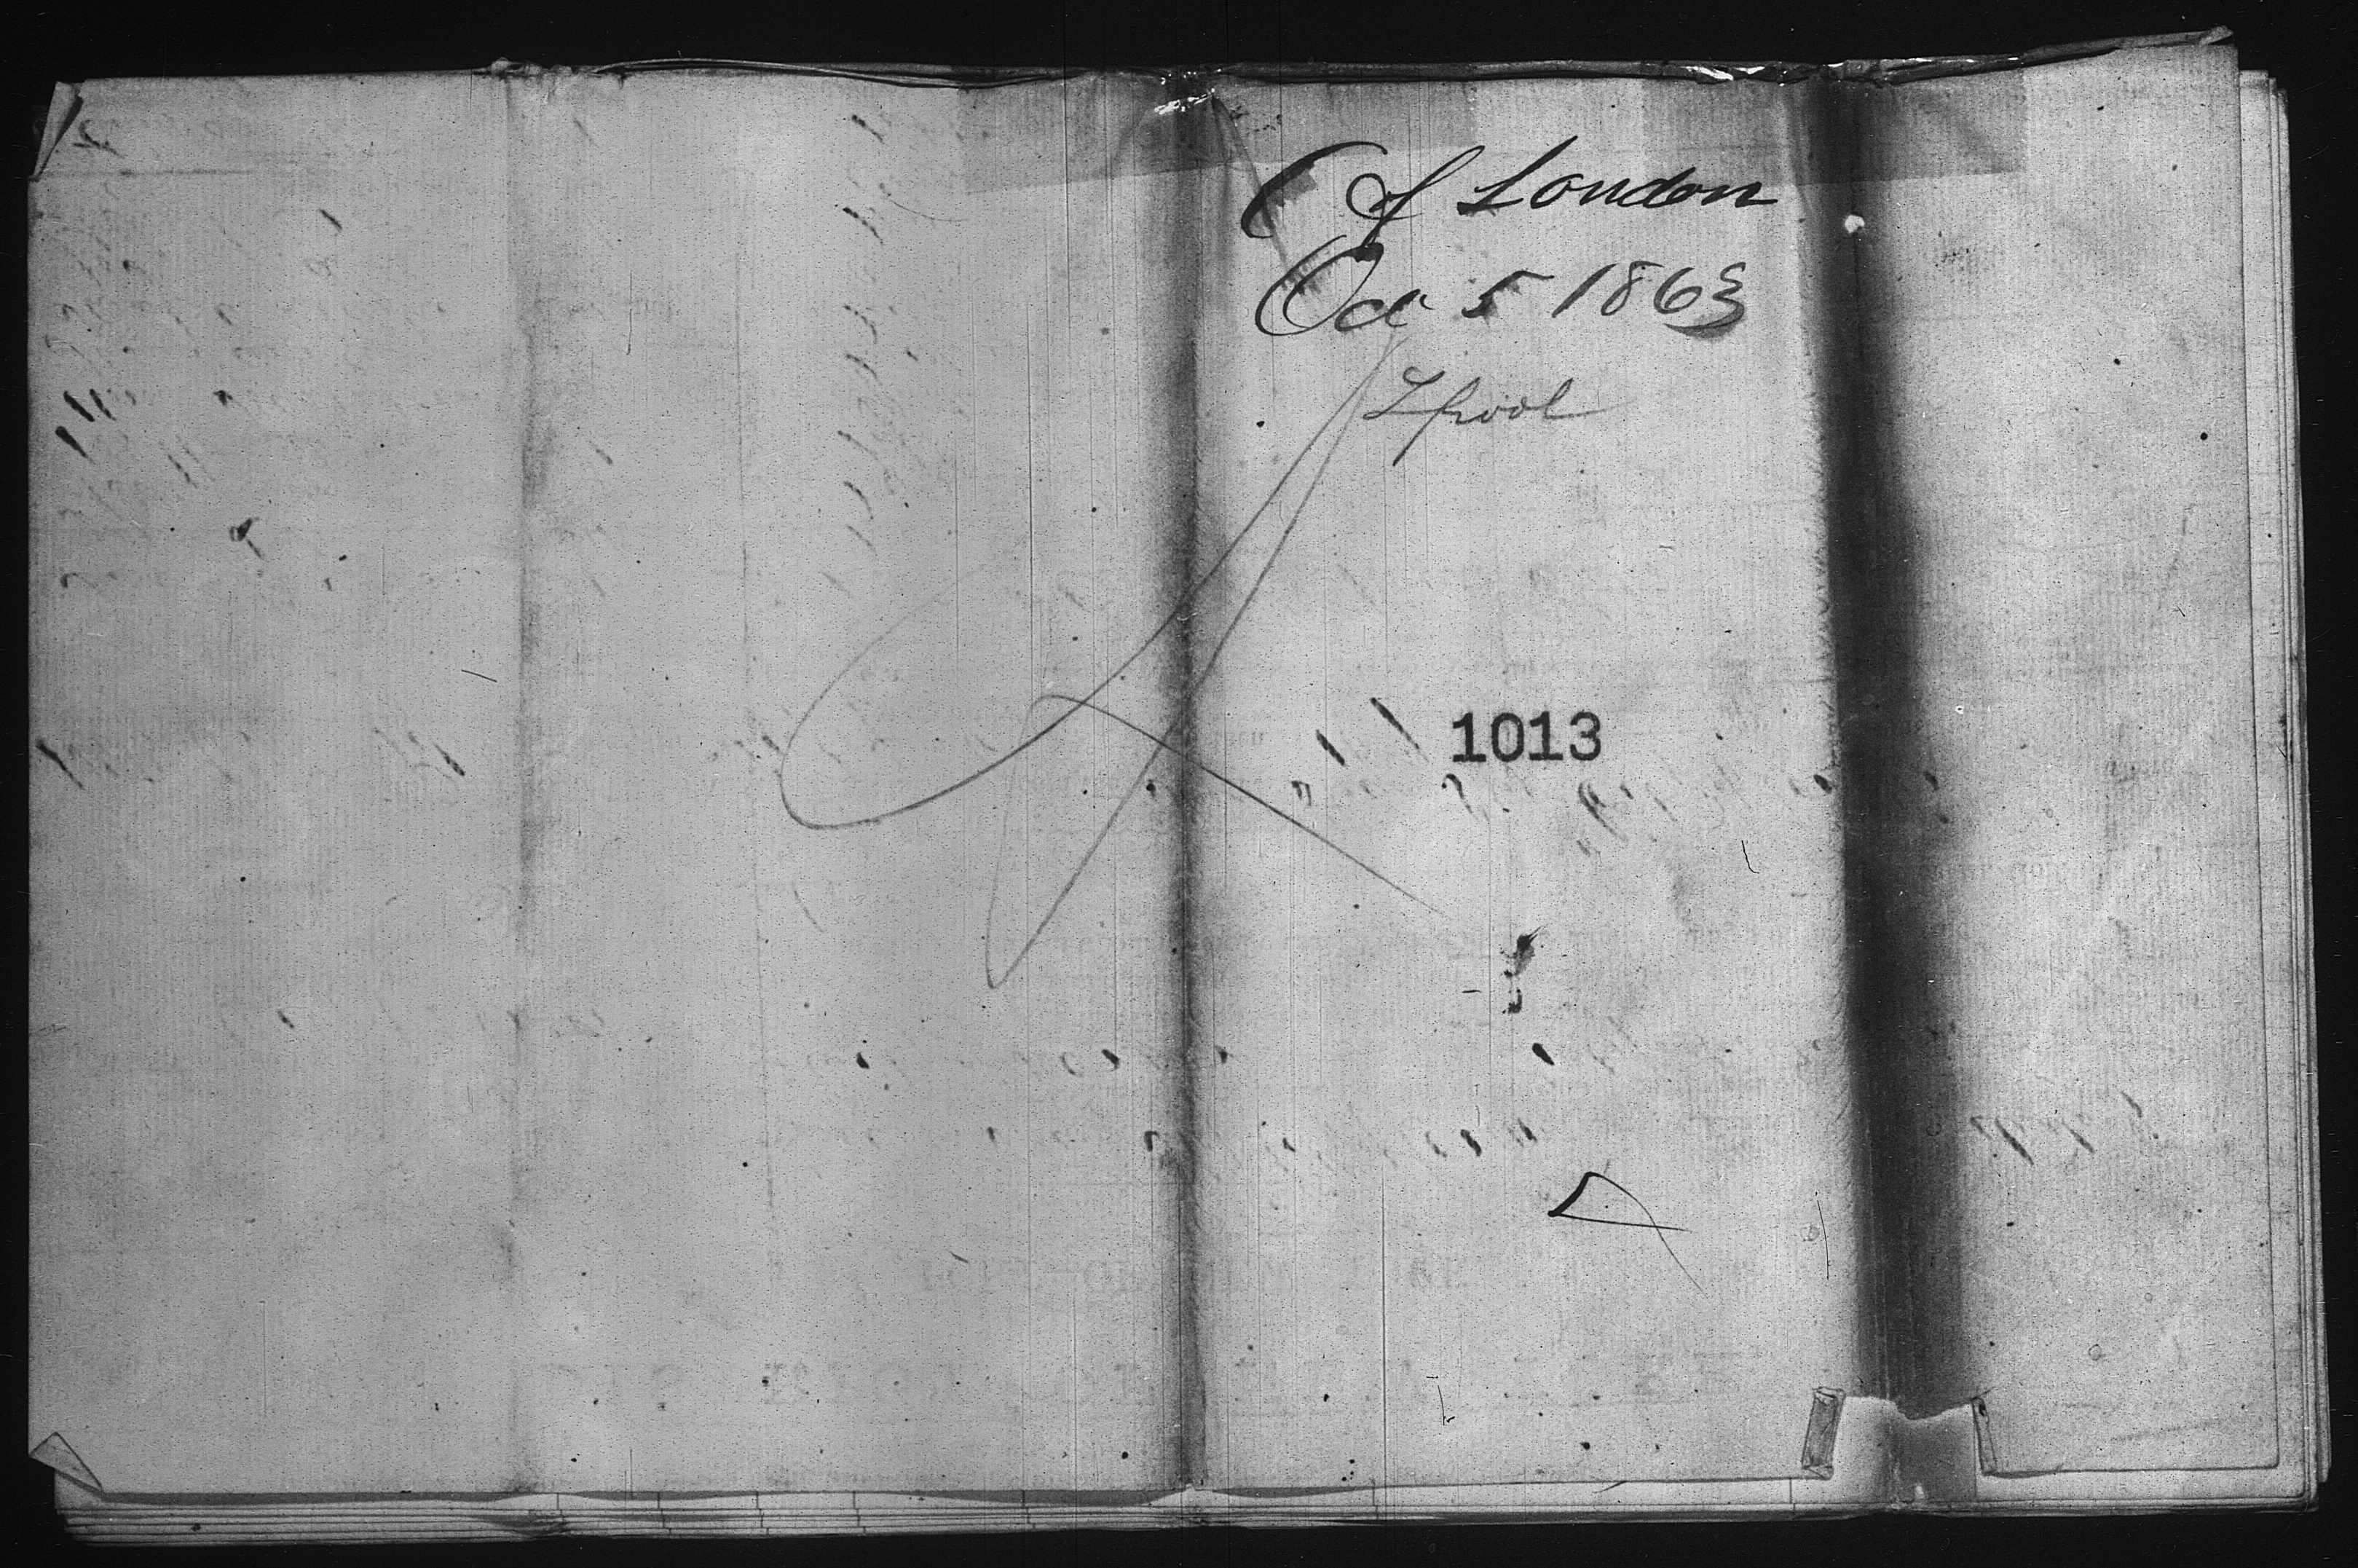 C of London
Oct 5 1863
Lpool
1013